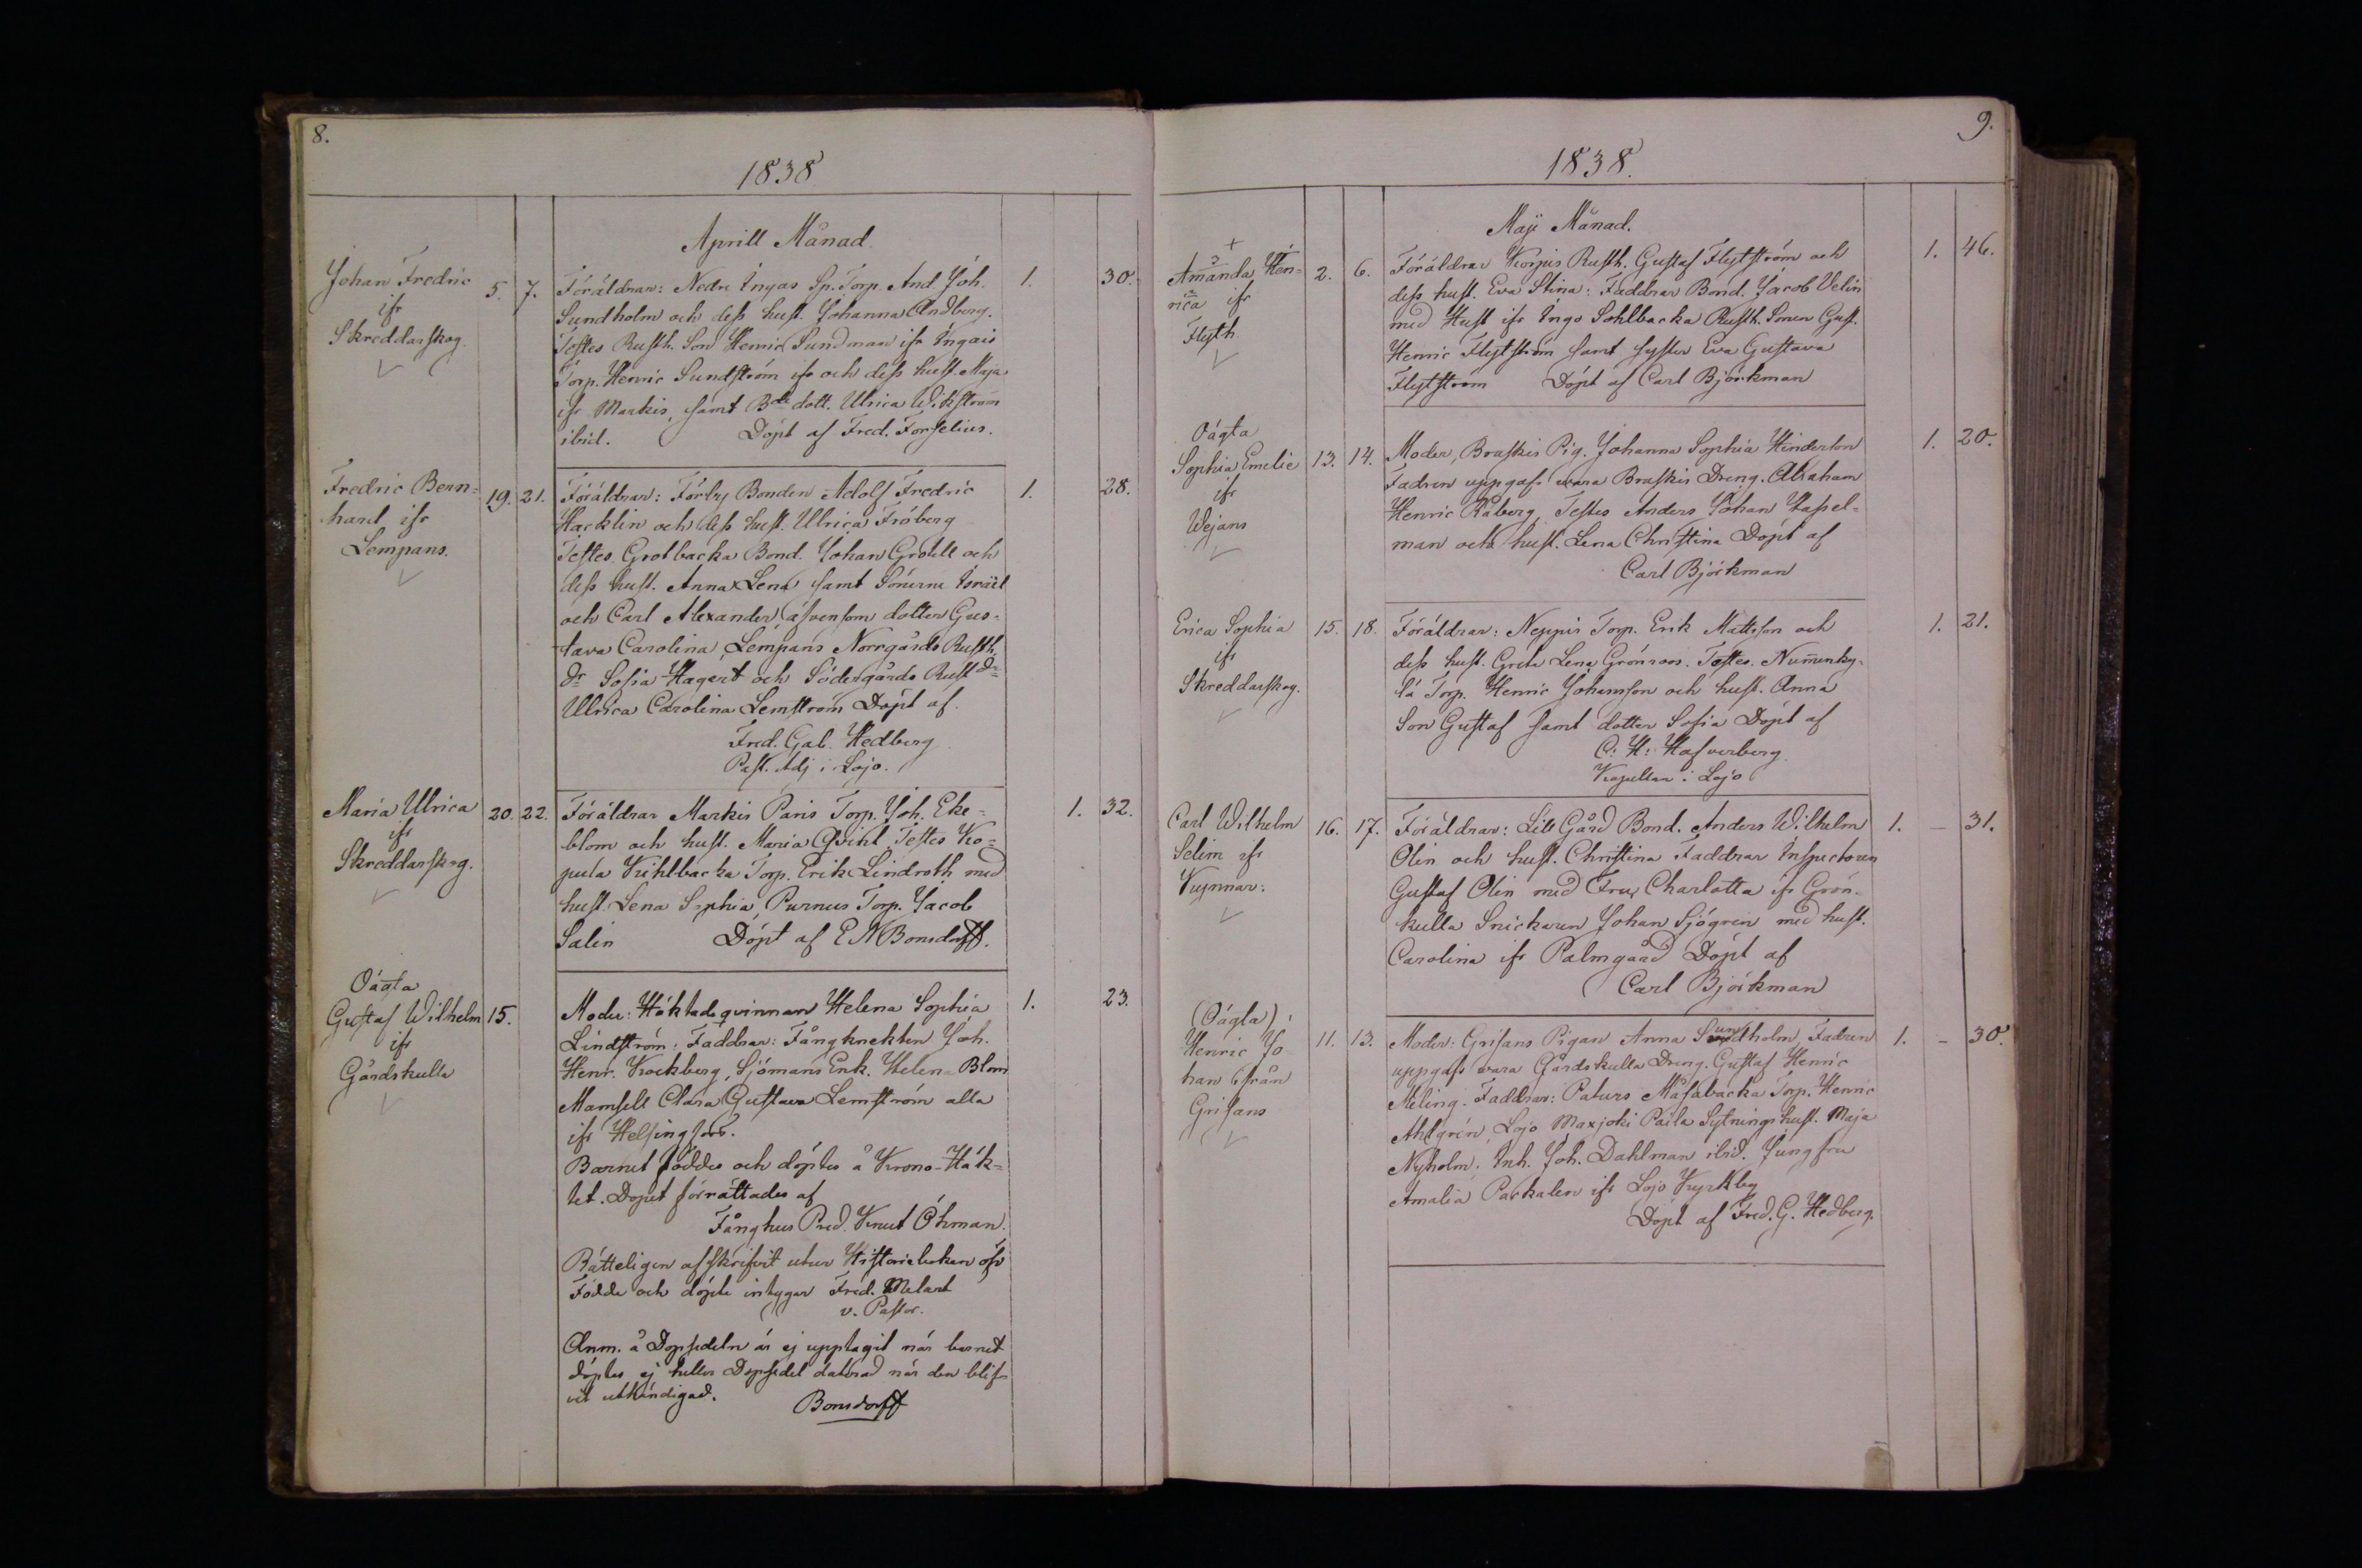 8.
1838
Aprill Månad.
Johan Fredric
ifr
Skreddarskog
5. 7.
Föräldrar: Nedre Ingas Sp. Torp. And. Joh.
Sundholm och dess hust. Johanna Andberg.
Testes Rusth. Son Henric Sundman ifr Ingais
Torp. Henric Sundström ifr och dess hust. Maja
ifr Markis, samt B.de dott. Ulrica Wikström
ibid. Döpt af Fred. Forselius.
1. 30.
Fredric Bern=
hard ifr
Lempans.
19. 21.
Föräldrar: Förby Bonden Adolf Fredric
Hacklin och dess hust. Ulrica Fröberg
Testes Grotbacka Bond. Johan Grotell och
dess hust. Anna Lena samt Sönerne Israël
och Carl Alexander, äfvensom dotter Gus=
tava Carolina, Lempans Norrgårds Rusth.
Dr Sofia Hagert och Södergårds Rust dr
Ulrica Carolina Lemström Döpt af
Fred. Gab. Hedberg
Past. Adj i Lojo.
1. 28.
Maria Ulrica
ifr
Skreddarskog.
20. 22.
Föräldrar Markis Paris Torp. Joh. Eke=
blom och hust. Maria Qvint Testes Ko=
pula Kihlbacka Torp. Erik Lindroth med
hust. Lena Sophia, Purnus Torp. Jacob
Salin Döpt af E N Bonsdorff.
1. 32.
Oägta
Gustaf Wilhelm
ifr
Gårdskulla
15.
Moder: Häktade qvinnan Helena Sophia
Lindström: Faddrar: Fångknekten Joh.
Henr. Kockberg, Sjömans Enk. Helena Blom
Mamsell Clara Gustava Lemström alla
ifr Helsingfors.
Barnet föddes och döptes å Krono-Häk=
tet. Dopet förrättades af
Fånghus Pred. Knut Öhman.
Rätteligen afskrifvit utur Historieboken öfr
Födde och döpte intygar Fred. Melart
v. Pastor.
Anm. å Dopsedeln är ej upptagit när barnet
döptes ej heller Dopsedel daterad när den blif=
vit uthändigad. Bonsdorff
1. 23.
9.
1838.
Maji Månad.
Amanda Hen=
rica ifr
Flyth
2. 6.
Föräldrar Korpis Rusth. Gustaf Flytström och
dess hust. Eva Stina: Faddrar Bond. Jacob Velin
med Hust ifr Ingo Sohlbacka Rusth. Sonen Gust.
Henric Flytström samt syster Eva Gustava
Flytström Döpt af Carl Björkman
1. 46.
Oägta
Sophia Emelie
ifr
Wejans
13. 14.
Moder, Braskis Pig. Johanna Sophia Hinderton
Fadren uppgafs vara Braskis Dreng. Abraham
Henric Råberg, Testes Anders Johan Hassel=
man och hust. Lena Christina Döpt af
Carl Björkman
1. 20.
Erica Sophia
ifr
Skreddarskog.
15. 18.
Föräldrar: Neppis Torp. Erik Mattsson och
dess hust. Greta Lena Grönroos. Testes. Nummenky=
lä Torp. Henric Johansson och hust. Anna
Son Gustaf samt dotter Sofia Döpt af
C: H: Hafverberg
Kapellan i Lojo
1. 21.
Carl Wilhelm
Selim ifr
Kynnar:
16. 17.
Föräldrar: Lill Gård Bond. Anders Wilhelm
Olin och hust. Christina Faddrar Inspectoren
Gustaf Olin med Fru, Charlotta ifr Grön-
kulla Snickaren Johan Sjögren med hust.
Carolina ifr Palmgård Döpt af
Carl Björkman
1. – 31.
(Oägta)
Henric Jo
han ifrån
Grisans
11. 13.
Moder: Grisans Pigan Anna Sundholm, Fadren
uppgafs vara Gårdskulla Dreng. Gustaf Henric
Meling. Faddrar: Paturs Måsabacka Torp. Henric
Ahlgrén, Lojo Maxjoki Paila Sytningshust. Maja
Nyholm. Inh. Joh. Dahlman ibid. Jungfru
Amalia Parkalen ifr Lojo Kyrkby
Döpt af Fred. G. Hedberg.
1. – 30.